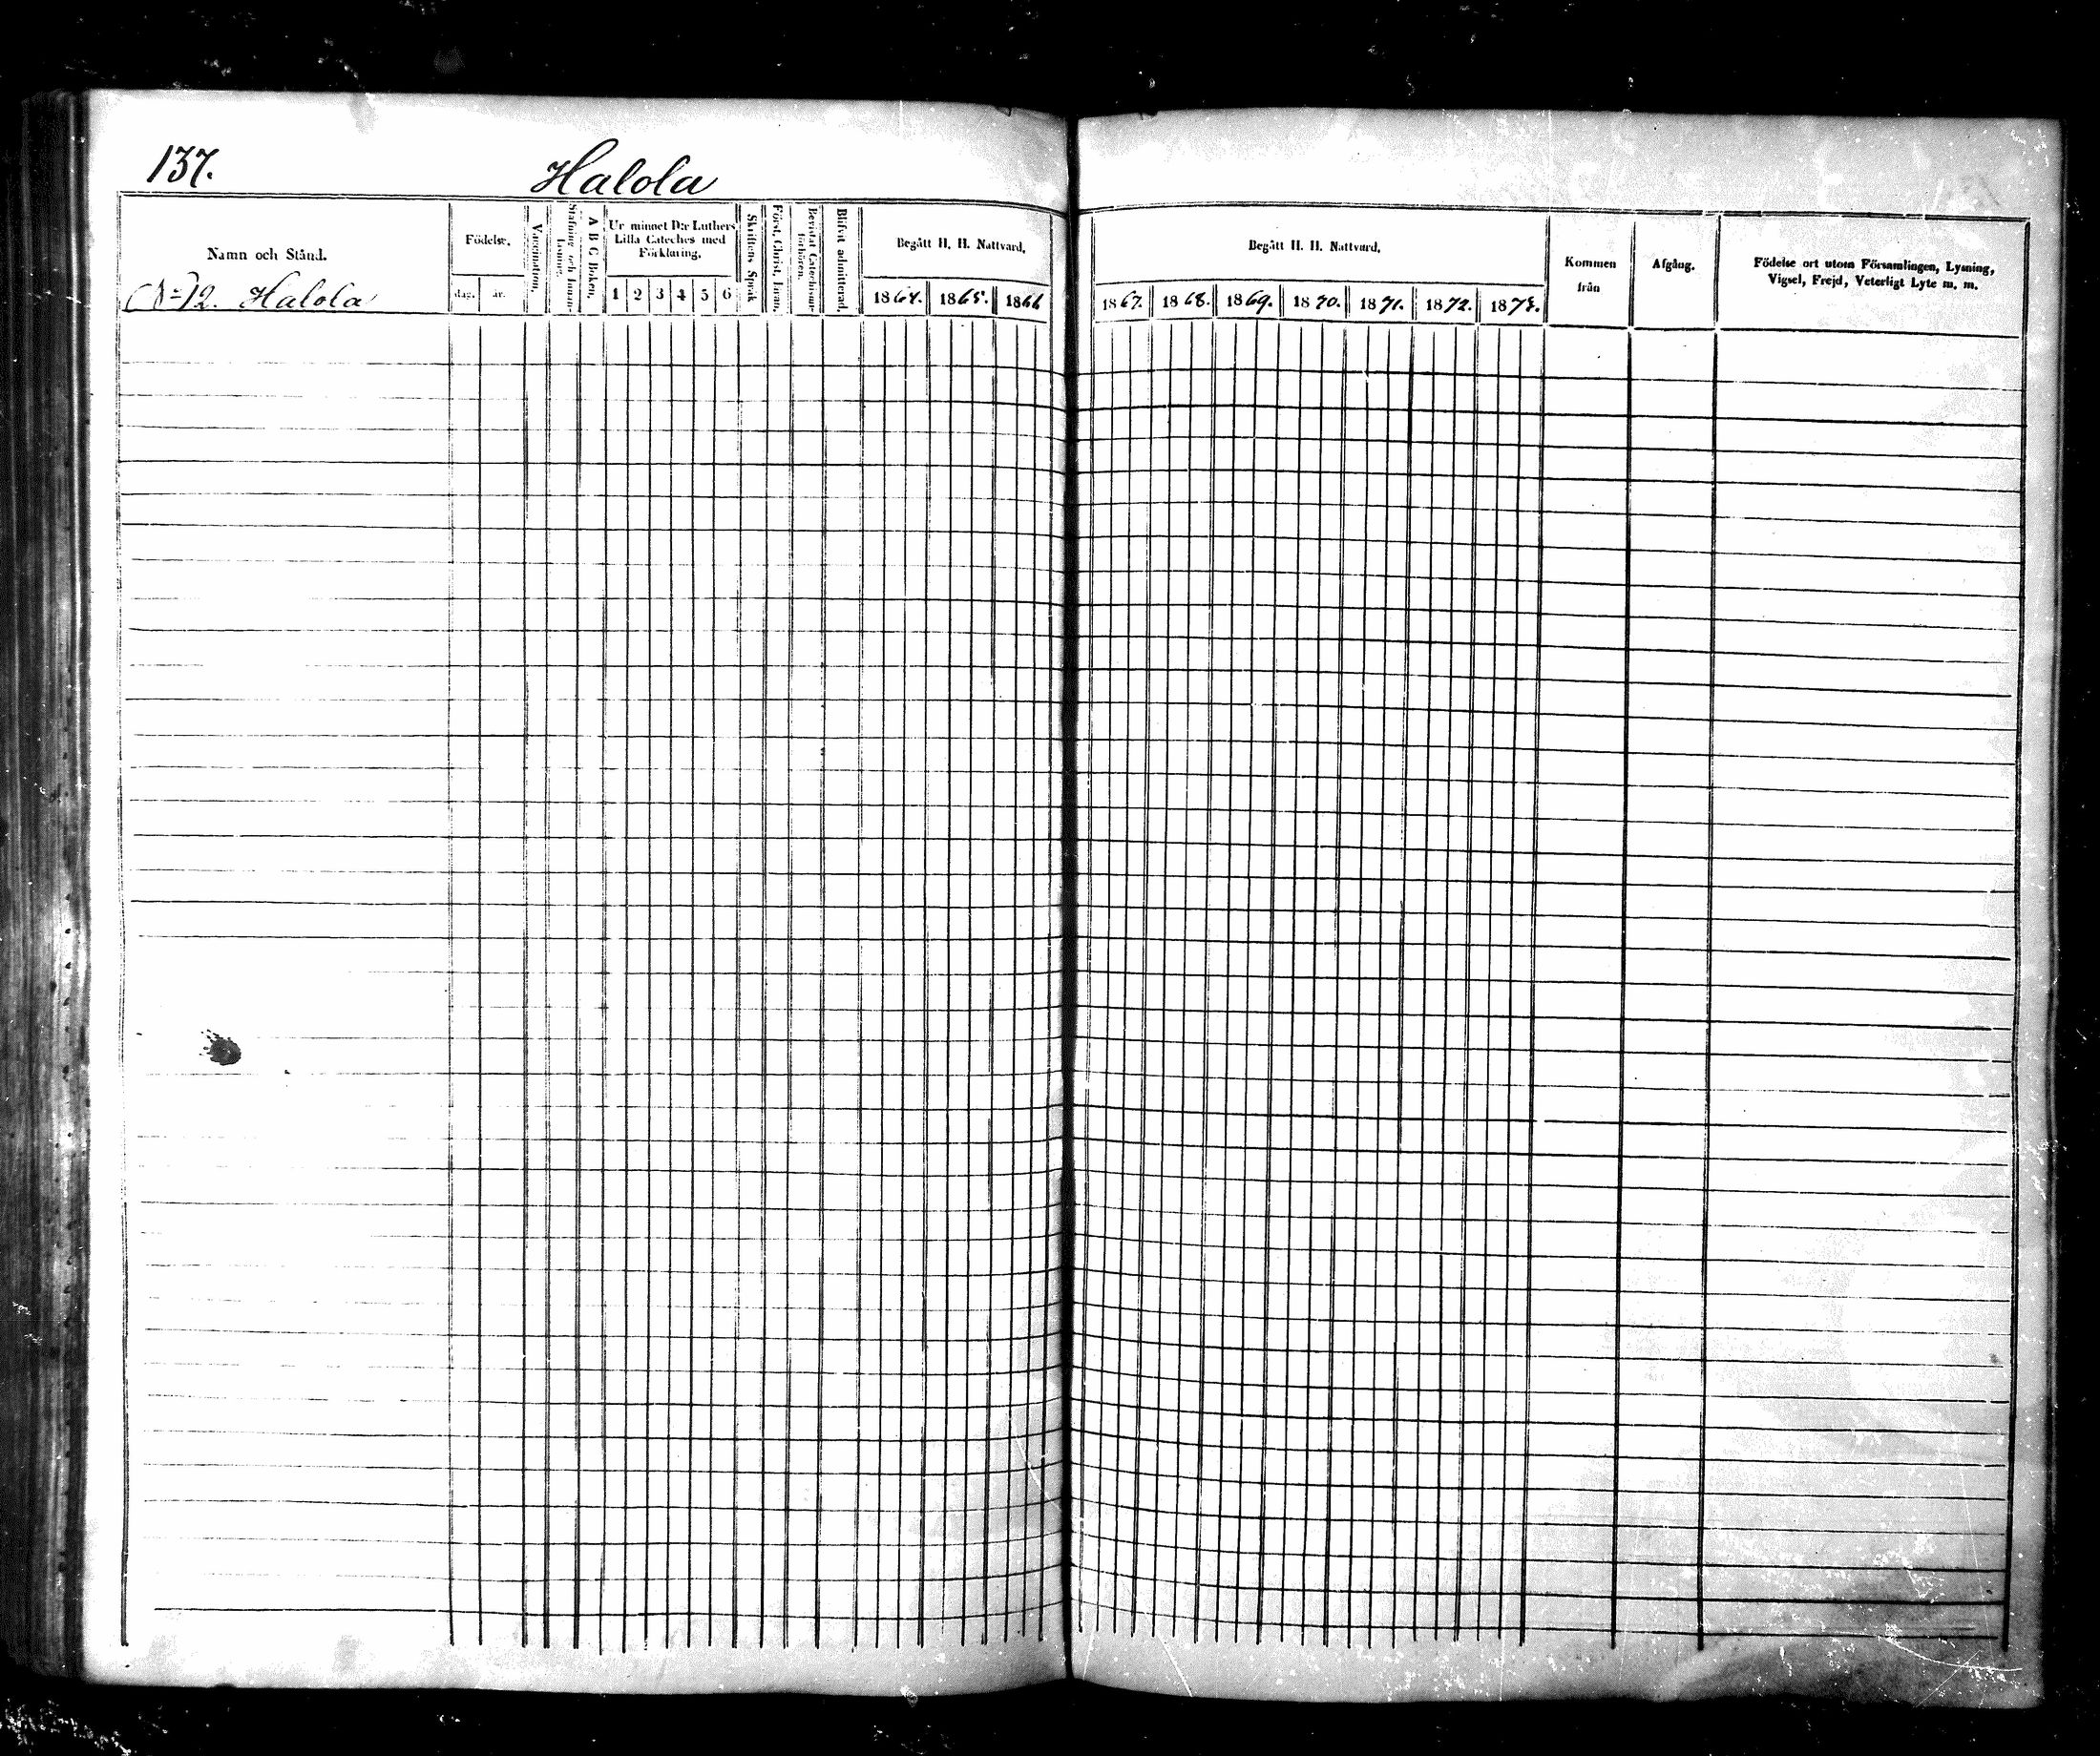 137.
Halola
Namn och Stånd.
N:o 2. Halola
Födelse.
dag. år.
Vaccination.
Stafning och Innan-
läsning.
A B C Boken.
Ur minnet D:r Luthers
Lilla Cateches med
Förklaring.
1 2 3 4 5 6
Skriftens Språk
Först. Christ. Inan.
Bevistat Catechismi-
förhören.
Blifvit admitterad.
Begått H. H. Nattvard.
1864. 1865. 1866
Begått H. H. Nattvard.
1867. 1868. 1869. 1870. 1871. 1872. 1873.
Kommen
från
Afgång.
Födelse ort utom Församlingen, Lysning,
Vigsel, Frejd, Veterligt Lyte m. m.